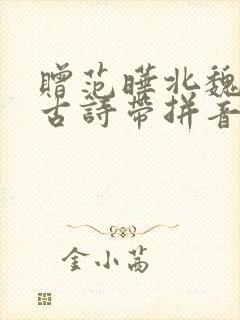 贈范曄北魏
古詩帶拼音
金小茜